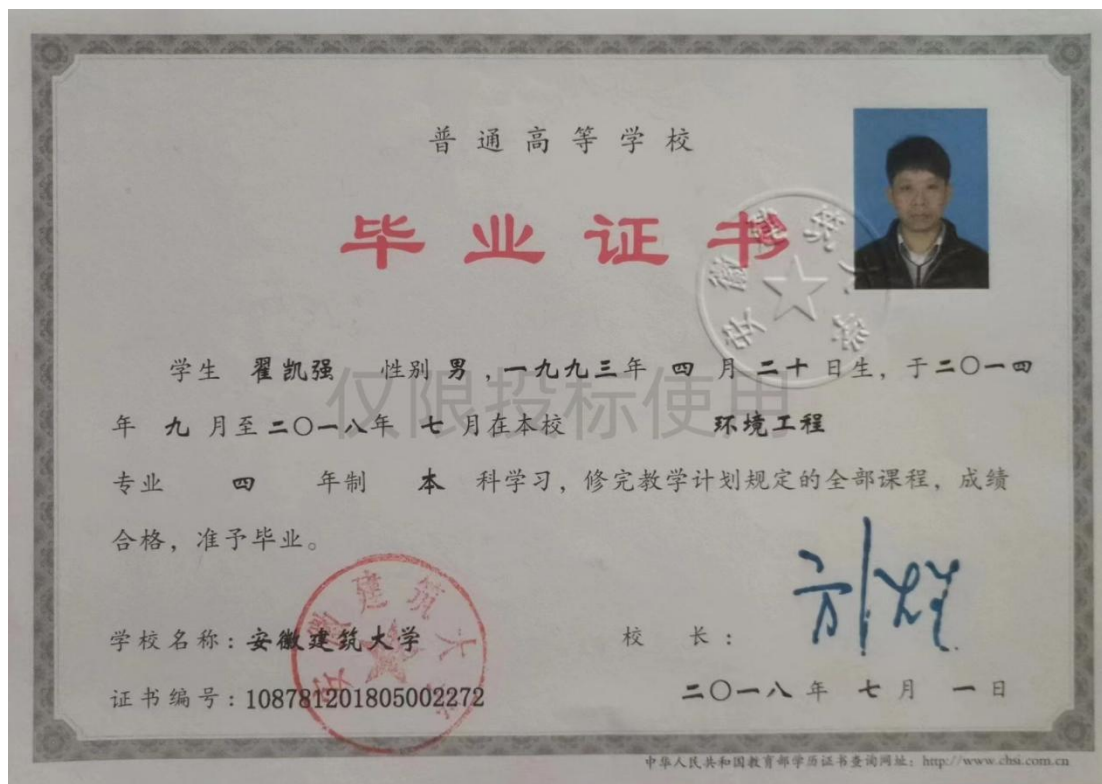 普通高等学校
毕业证书
安徽建筑大学
学生 翟凯强 性别 男，一九九三年 四 月 二十 日生，于二〇一四
年 九 月至二〇一八年 七 月在本校 环境工程
仅限投标使用
专业 四 年制 本 科学习，修完教学计划规定的全部课程，成绩
合格，准予毕业。
学校名称：安徽建筑大学
校 长：
安徽建筑大学
证书编号：108781201805002272
二〇一八 年 七 月 一 日
中华人民共和国教育部学历证书查询网址：http://www.chsi.com.cn